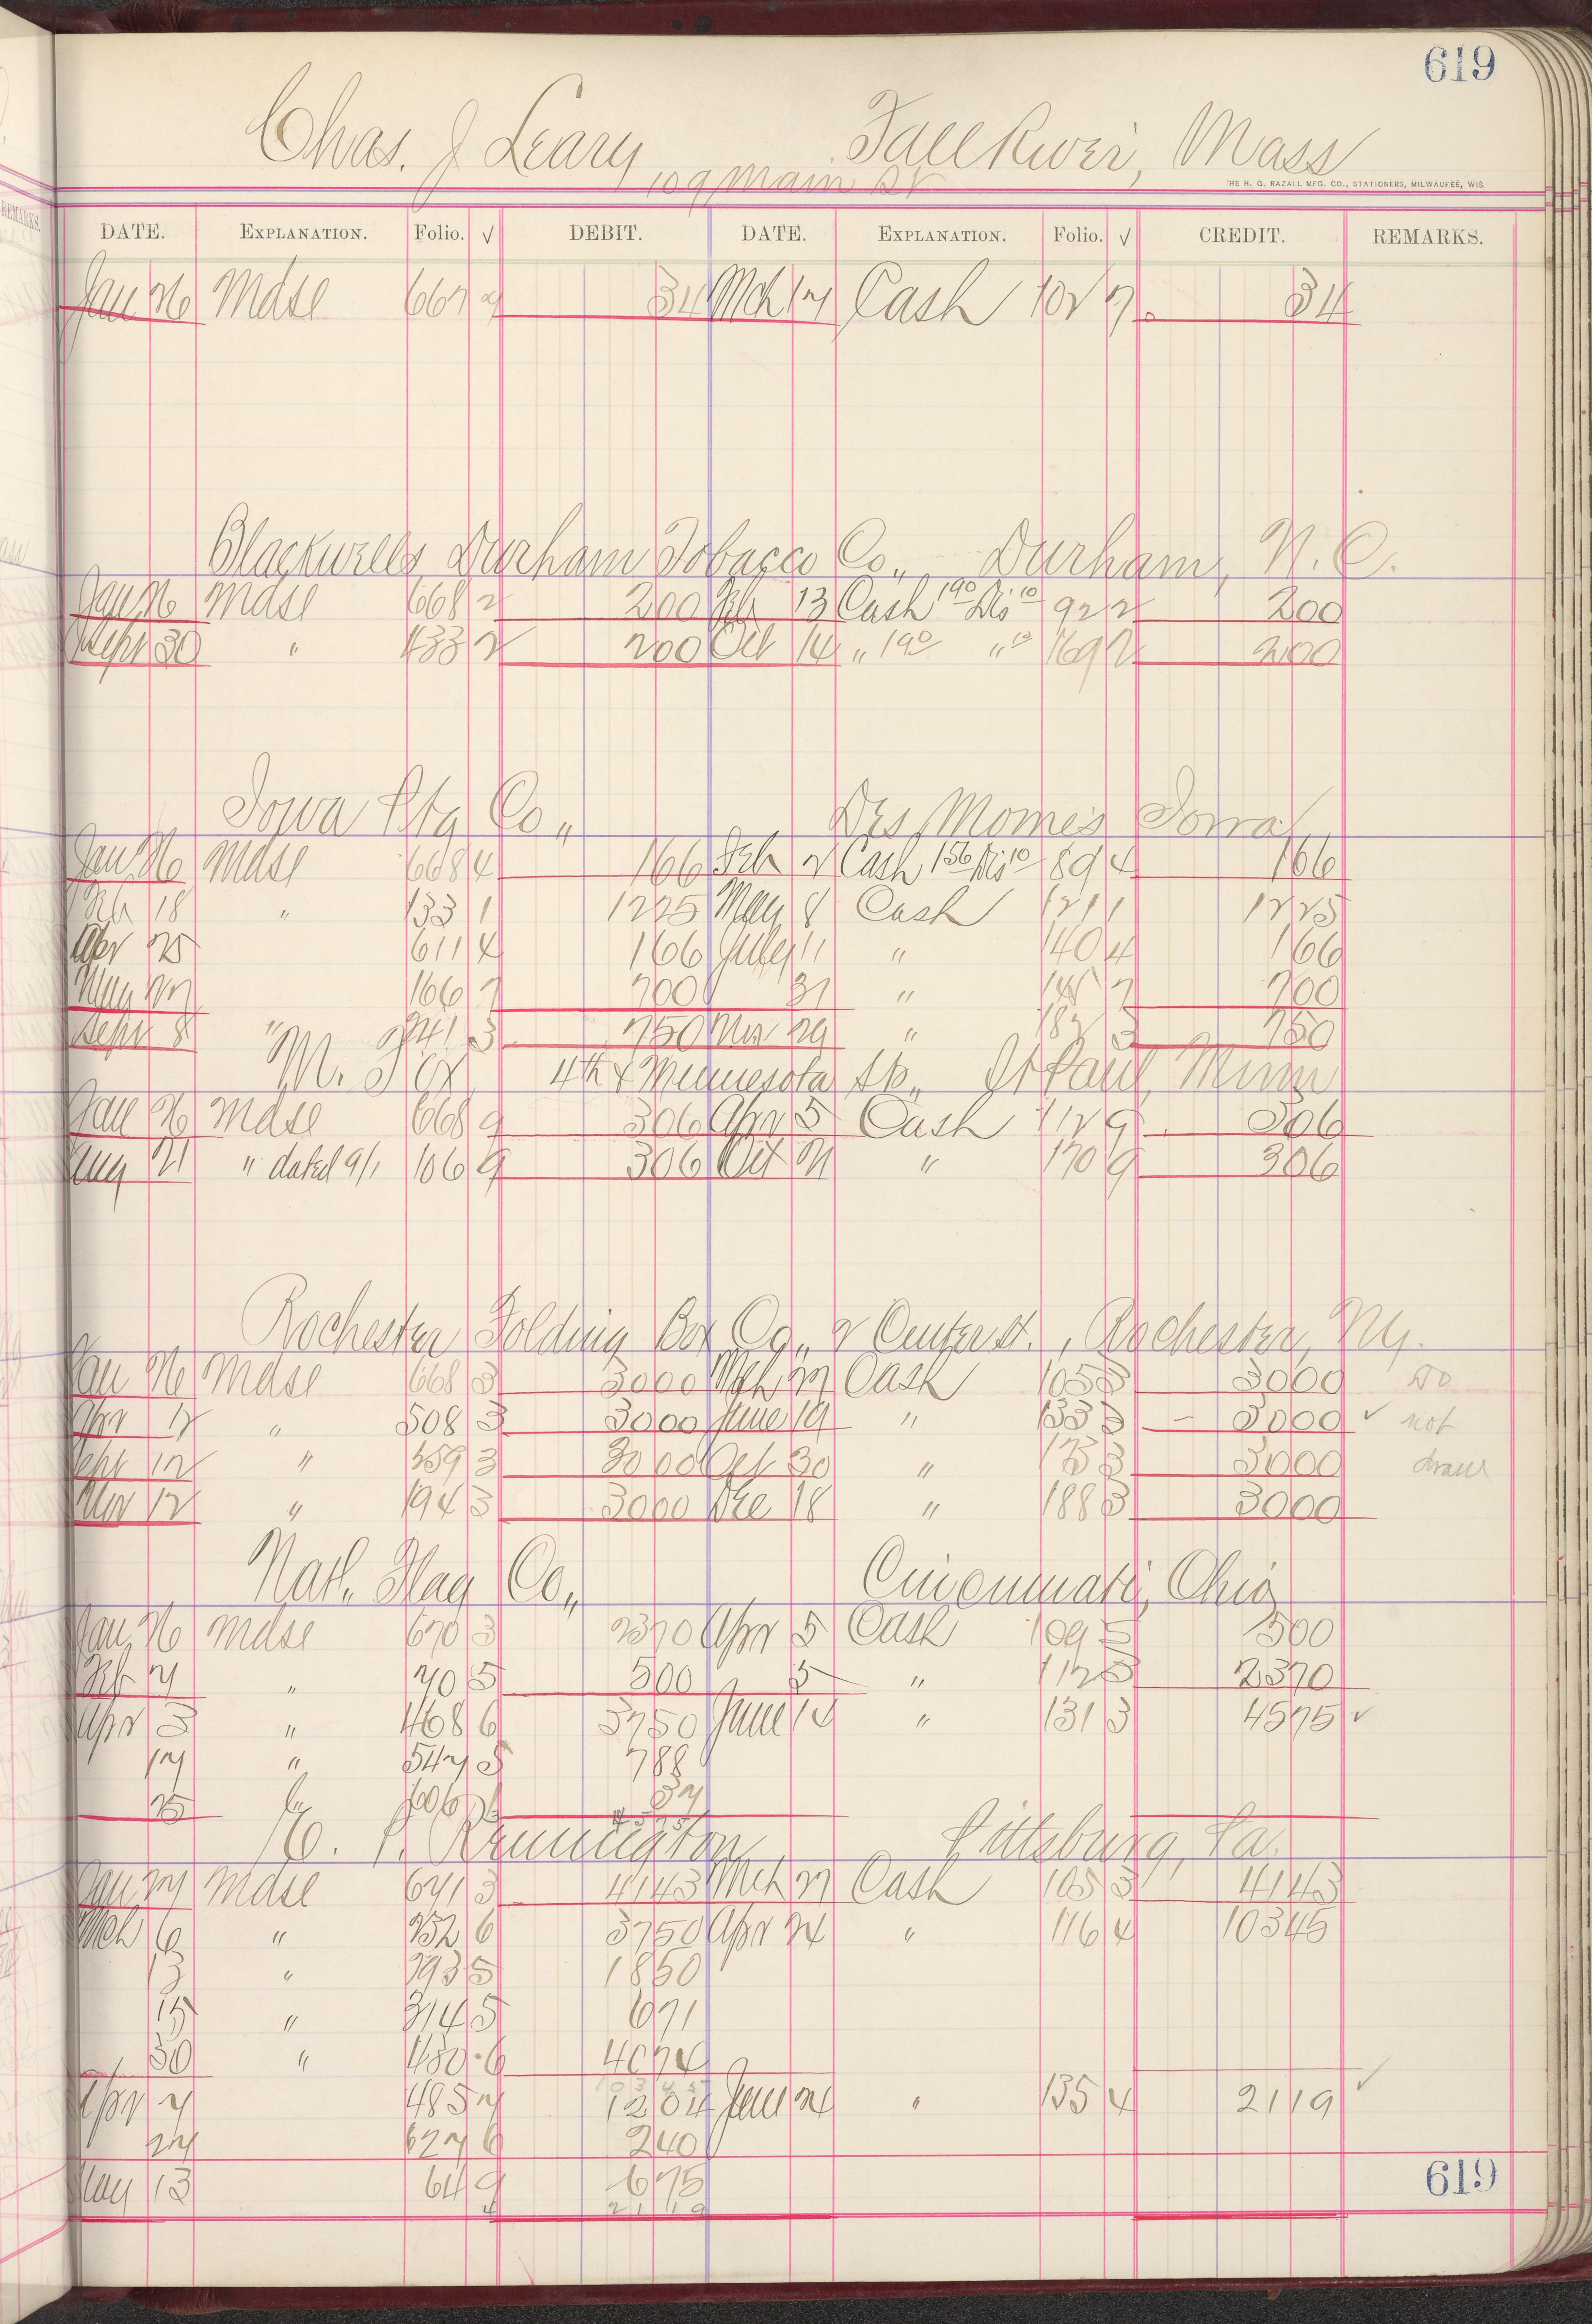 619
Chas. J Leary Fall River, Mass
109 Main St
THE H. G. RAZALL MFG. CO., STATIONERS, MILWAUKEE, WIS.
REMARKS.
DATE. EXPLANATION. Folio. √ DEBIT. DATE. EXPLANATION. Folio. √ CREDIT. REMARKS.
Jan 26 Mdse 667 34 Mch 17 Cash 102 7 34
Blackwells Durham Tobacco Co., Durham, N.C.
Jan 26 Mdse 668 2 200 Feb 13 Cash 190 Dis 10 92 2 200
Sept 30 " 433 2 200 Oct 14 " 190 " 10 169 2 200
Iowa Ptg Co., Des Moines Iowa
Jan 26 Mdse 668 4 166 Feb 2 Cash 156 Dis 10 89 4 166
Feb 18 " 133 1 1225 May 8 Cash 121 1 1225
Apr 25 611 4 166 July 11 " 140 4 166
May 27 166 7 700 31 " 7 700
Sept 8 " 241 3 750 Nov 29 " 182 3 750
M. 4th & Minnesota St., St Paul, Minn
Jan 26 Mdse 668 9 306 Apr 5 Cash 112 9 306
Aug 21 " dated 9/1 106 9 306 Oct 21 " 170 9 306
Rochester Folding Box Co., 2 Center St., Rochester, N.Y.
Jan 26 Mdse 668 3 3000 Mch 27 Cash 105 3 3000 Do
Apr 12 " 508 3 3000 June 19 " 133 3 - 3000 ✓ not
Sept 12 " 359 3 3000 Oct 30 " 173 3 3000 draw
Nov 12 " 194 3 3000 Dec 18 " 188 3 3000
Natl. Flag Co., Cincinnati, Ohio
Jan 26 Mdse 670 3 2370 Apr 5 Cash 109 5 500
Feb 7 " 70 5 500 5 " 112 3 2370
Apr 3 " 468 6 3750 June 14 " 131 3 4575 ✓
17 " 547 5 788
25 " 606 37
4575
E. P. Remington Pittsburg, Pa.
Jan 27 Mdse 671 3 4143 Mch 27 Cash 105 3 4143
Mch 6 " 252 6 3750 Apr 24 " 116 4 10345
13 " 293 5 1850
15 " 314 5 671
30 " 450 6 4074
10345
Apr 7 485 7 1204 June 24 " 135 4 2119 ✓
24 627 6 240
May 13 64 9 675
2119
619